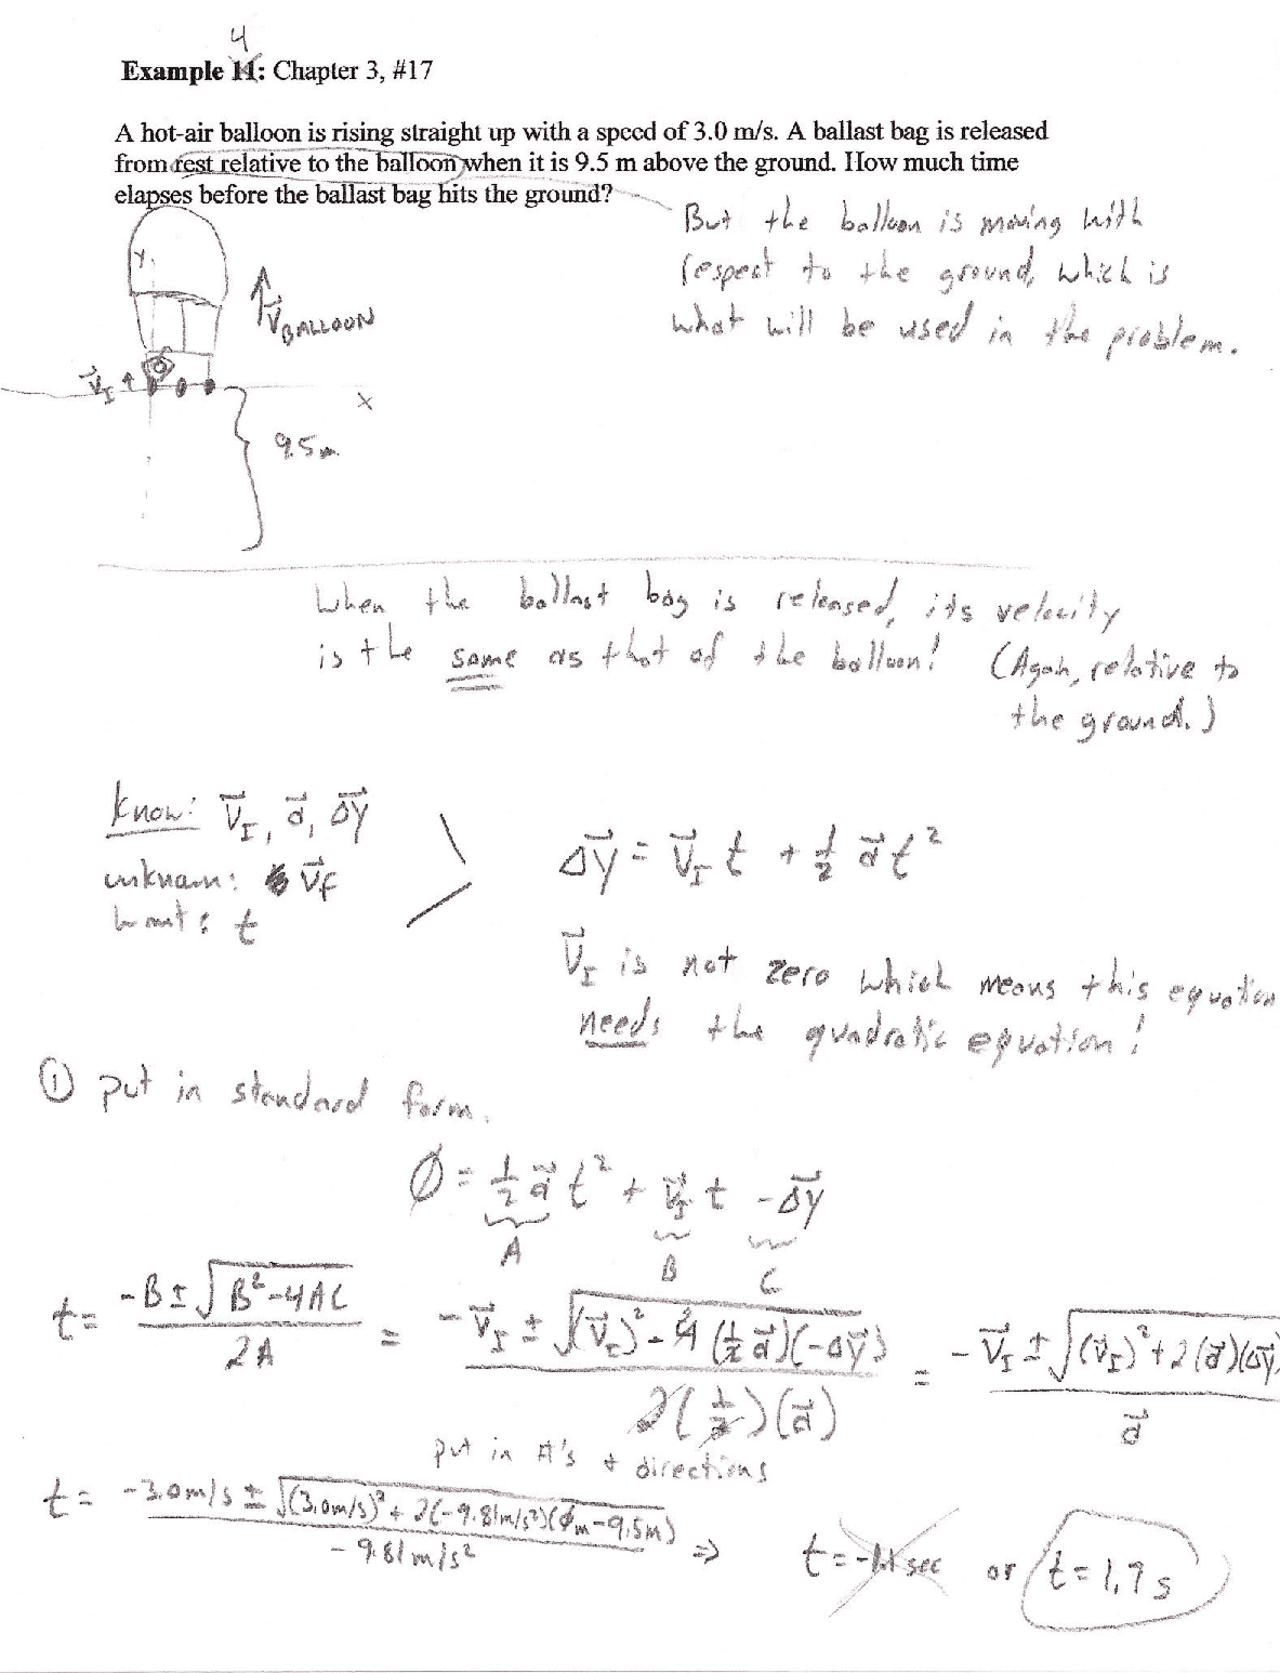 4
Example 11: Chapter 3, #17
A hot-air balloon is rising straight up with a speed of 3.0 m/s. A ballast bag is released
from rest relative to the balloon when it is 9.5 m above the ground. How much time
elapses before the ballast bag hits the ground?
But the balloon is moving with
respect to the ground, which is
what will be used in the problem.
y
V⃗BALLOON
V⃗I
x
9.5m
When the ballast bag is released, its velocity
is the same as that of the balloon! (Again, relative to
the ground.)
Know: V⃗I, a⃗, Δy⃗
unknown: V⃗f
want: t
Δy⃗ = V⃗I t + 1/2 a⃗ t²
V⃗I is not zero which means this equation
needs the quadratic equation!
① put in standard form.
Ø = 1/2 a⃗ t² + V⃗I t - Δy⃗
A B C
t = (-B ± √(B²-4AC)) / 2A = (-V⃗I ± √((V⃗I)² - 4(1/2 a⃗)(-Δy⃗))) / 2(1/2)(a⃗) = (-V⃗I ± √((V⃗I)² + 2(a⃗)(Δy⃗))) / a⃗
put in #'s + directions
t = (-3.0m/s ± √((3.0m/s)² + 2(-9.81m/s²)(Øm-9.5m))) / -9.81m/s² ⇒ t = -1.1 sec or t = 1.7 s